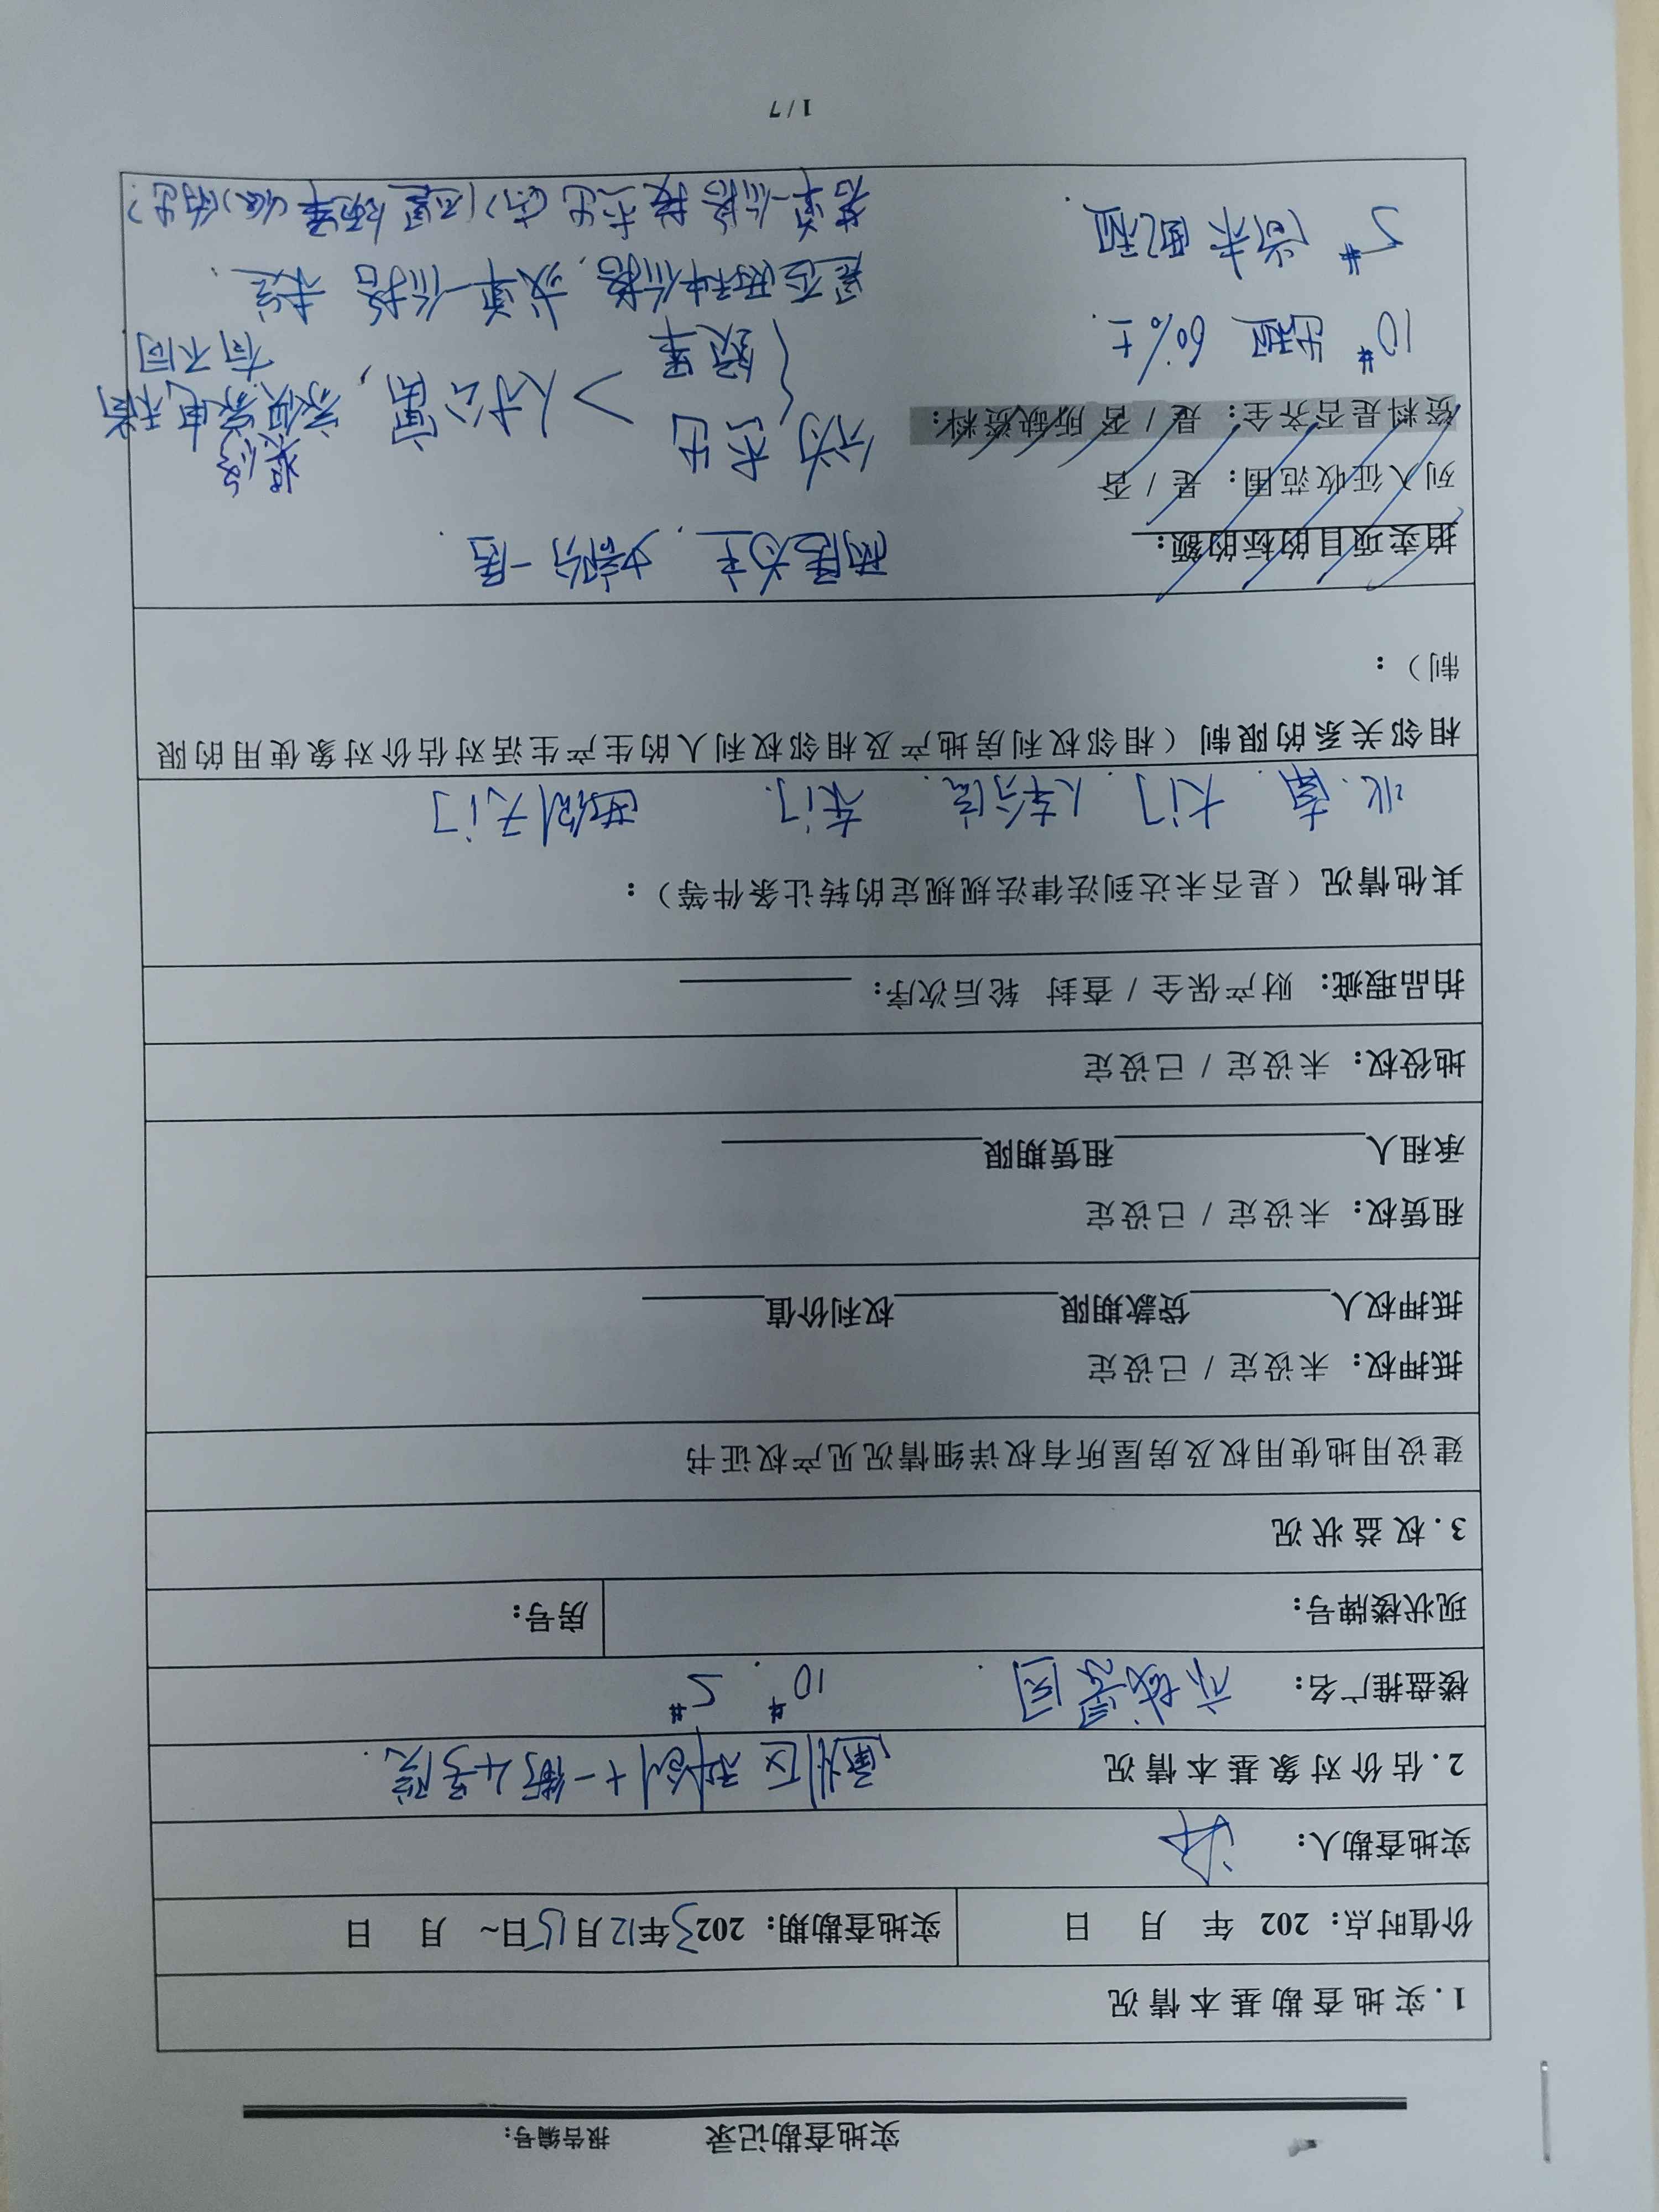 实地查勘记录 报告编号：
1.实地查勘基本情况
价值时点：202 年 月 日 实地查勘期：2023年12月15日~ 月 日
实地查勘人：
2.估价对象基本情况 通州区科创十一街4号院
楼盘推广名：亦城景园. 10#. 5#
现状楼牌号： 房号：
3.权益状况
建设用地使用权及房屋所有权详细情况见产权证书
抵押权：未设定 / 已设定
抵押权人 贷款期限 权利价值
租赁权：未设定 / 已设定
承租人 租赁期限
地役权：未设定 / 已设定
拍品瑕疵：财产保全 / 查封 轮后次序：
其他情况（是否未达到法律法规规定的转让条件等）：
北.南.大门.人车分流.东门. 西侧无门
相邻关系的限制（相邻权利房地产及相邻权利人的生产生活对估价对象使用的限
制）：
拍卖项目的标的额： 两居为主.少部分一居.
列入征收范围：是 / 否
资料是否齐全：是 / 否 所缺资料：
分为 > 人才公寓, 装修 家俱家电稍有不同
10# 出租 60%±.
是否两种价格.或单一价格 未定.
5# 尚未配租.
若单一价格按